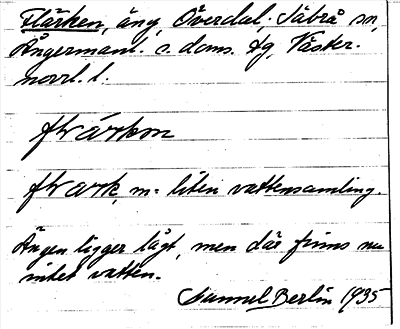 Flärken, äng, Överdal, Säbrå sn,
Ångermanl. s. doms. tg, Väster-
norrl. l.
flärkɷn
flark, m = liten vattensamling.
Ängen ligger lågt, men där finns nu
intet vatten.
Samuel Berlin 1935